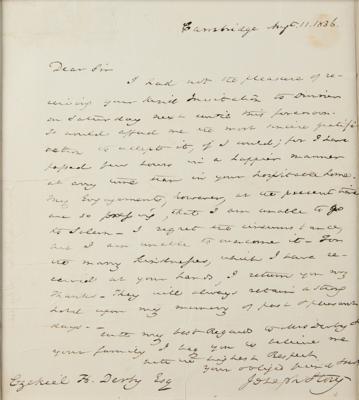 Cambridge Augt. 11. 1836.
Dear Sir
I had not the pleasure of re-
ceiving your kind Invitation to Dinner
on Saturday next until this forenoon.
It would afford me the most sincere gratifi-
cation to accept it, if I could; for I have
passed few hours in a happier manner
at any time than in your hospitable home.
My Engagements, however, at the present time
are so pressing, that I am unable to go
to Salem - I regret the circumstance,
but I am unable to overcome it - For
the many kindnesses, which I have re-
ceived at your hands, I return you my
thanks - They will always retain a strong
hold upon my memory of past & pleasant
days -
With my best Regard to Mrs Derby &
your family I beg you to believe me
with the highest Respect
Your obliged friend
Joseph Story
Ezekiel H. Derby Esq